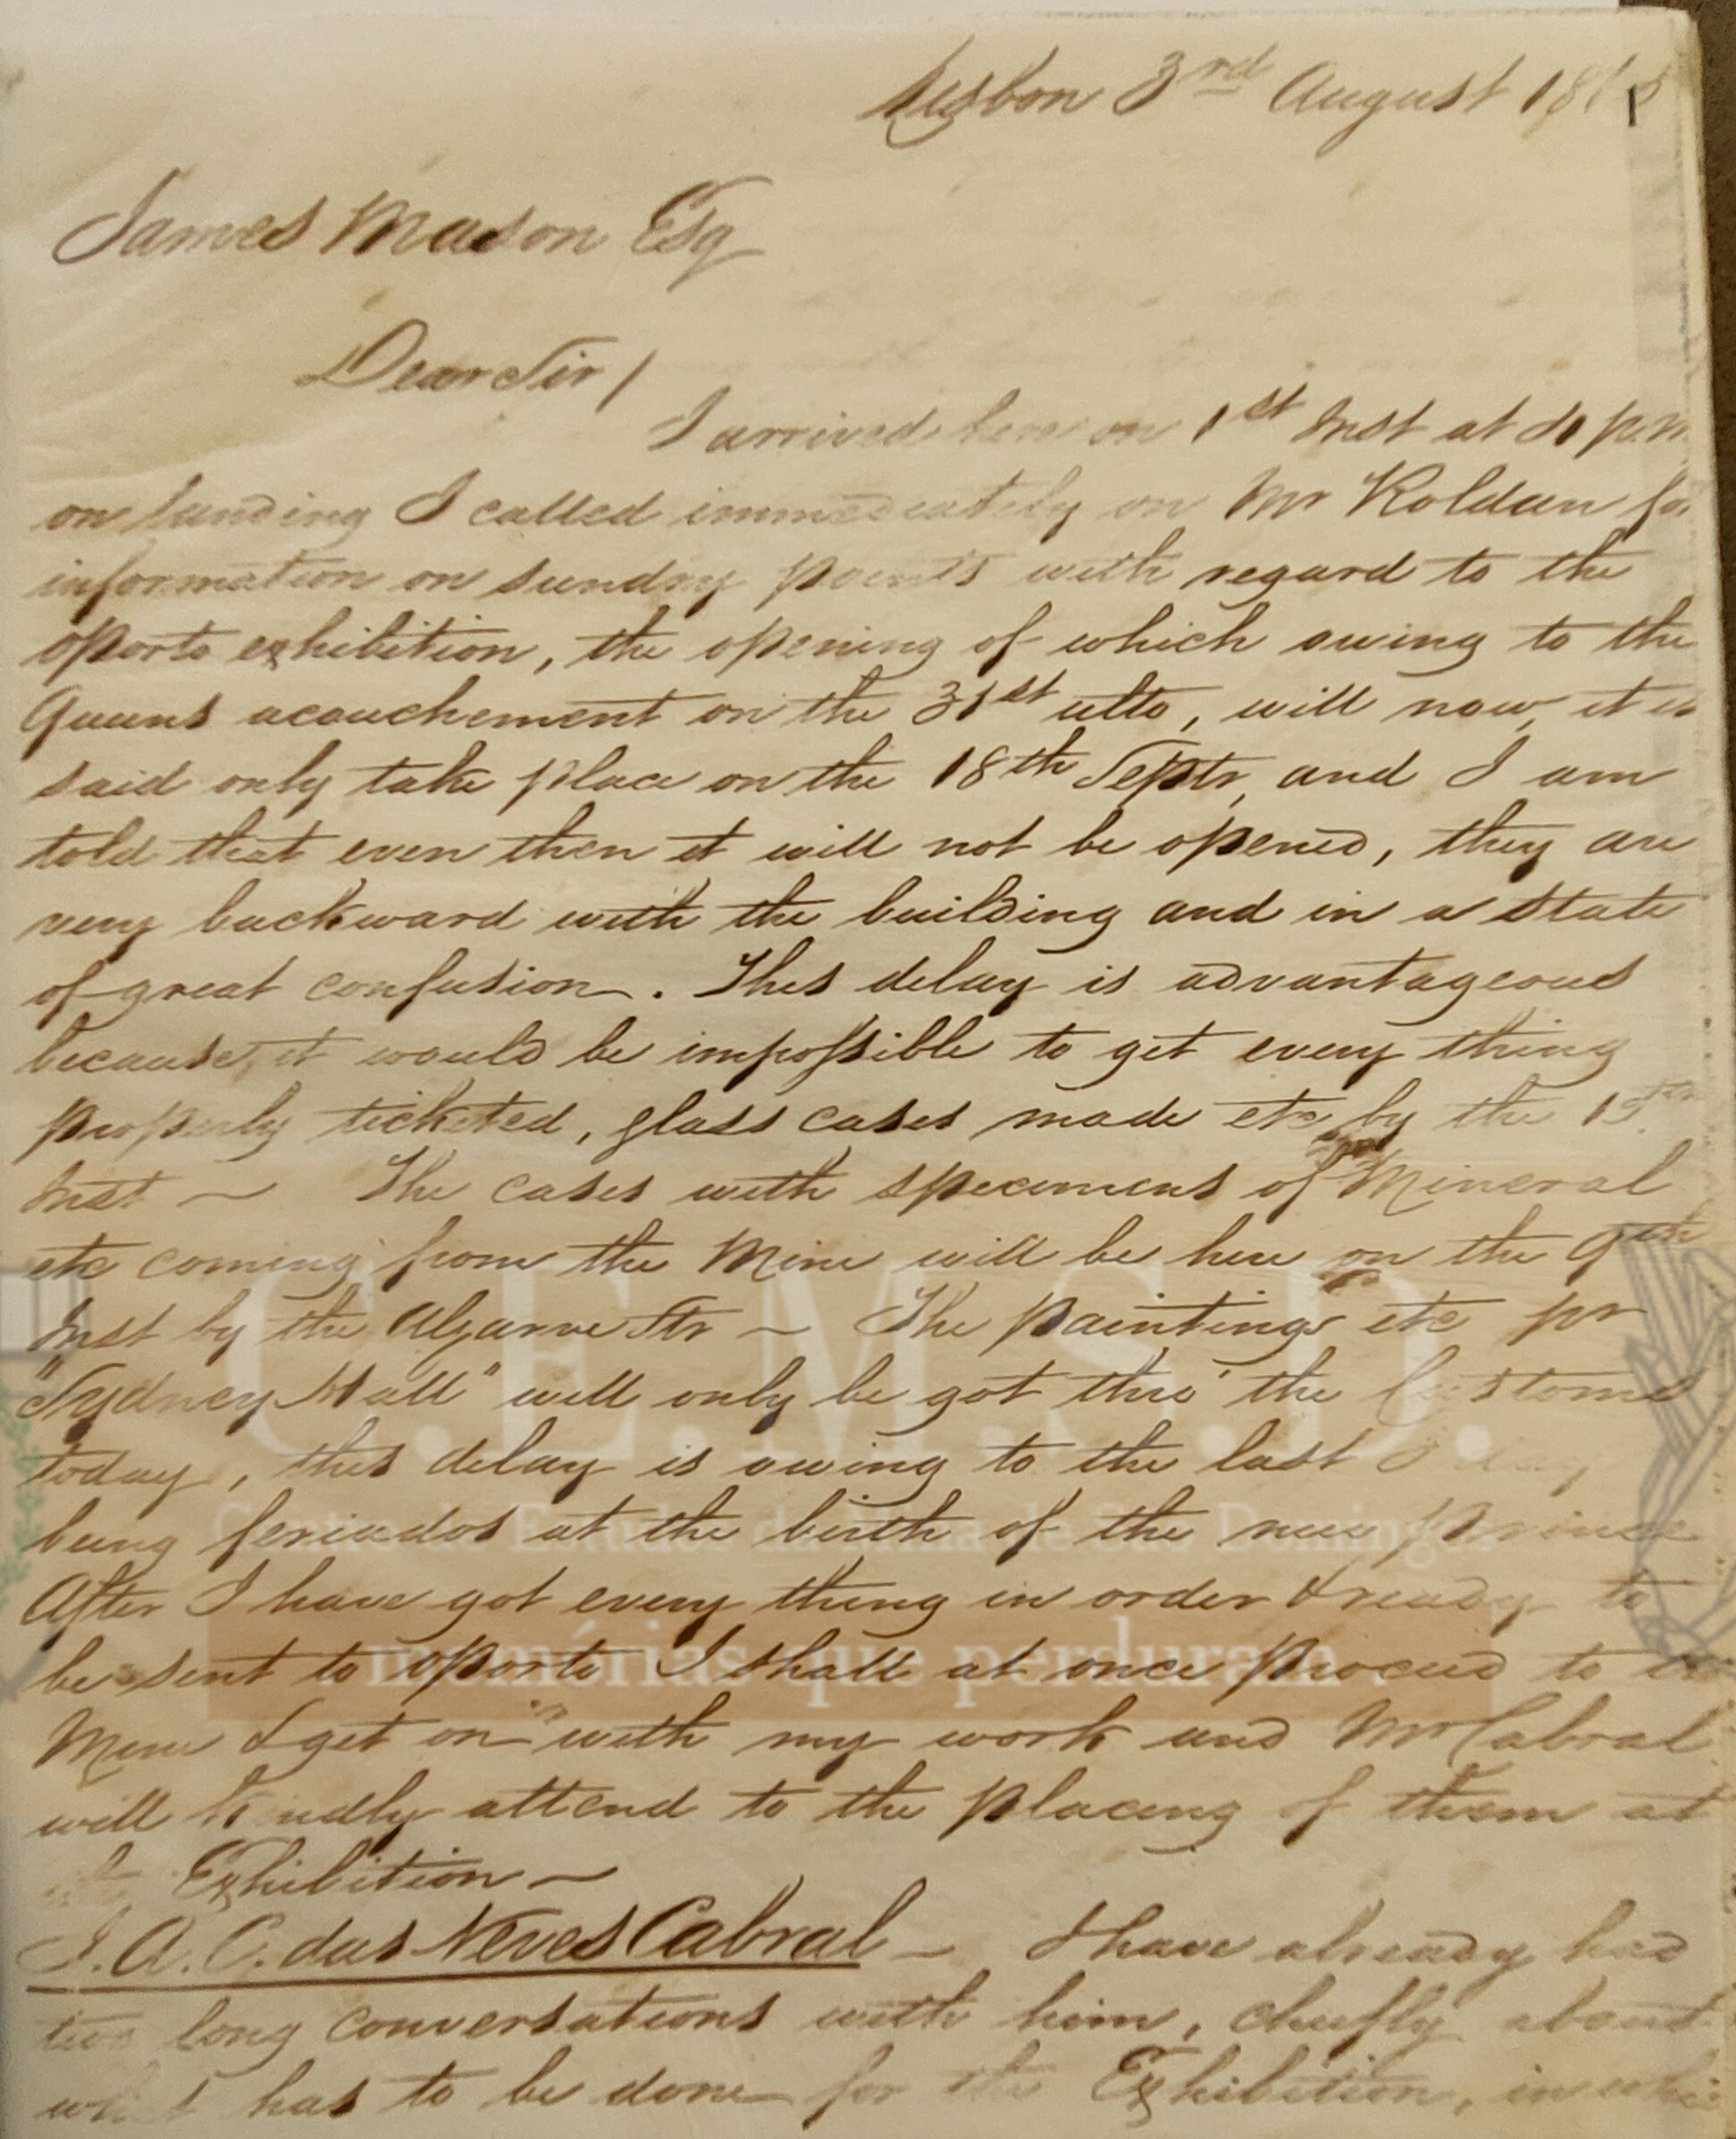 Lisbon 3rd August 186
James Mason Esq
Dear Sir /
I arrived here on 1st Inst at p.m
on landing I called immediately on Mr Roldan for
information on sundry points with regard to the
oporto exhibition, the opening of which owing to the
Queens acouchement on the 31st ulto, will now, it is
said only take place on the 18th Septr, and I am
told that even then it will not be opened, they are
very backward with the building and in a state
of great confusion. This delay is advantageous
because, it would be impossible to get every thing
properly ticketed, glass cases made etc by the 15th
Inst ~ The cases with specimens of Mineral
etc coming from the Mine will be here on the 9th
Inst by the Algarve Str ~ The paintings etc pr
"Sydney Hall" will only be got thro' the Customs
today, this delay is owing to the last
being feriados at the birth of the new prince
After I have got every thing in order & ready to
be sent to oporto I shall at once proceed to
Mine & get on with my work and Mr Cabral
will kindly attend to the placing of them at
Exhibition ~
J. A. C. das Neves Cabral ~ I have already had
two long conversations with him, chiefly about
what has to be done for the Exhibition, in whi
C.E.M.S.D.
Centro de Estudos da Mina de São Domingos
memórias que perduram.